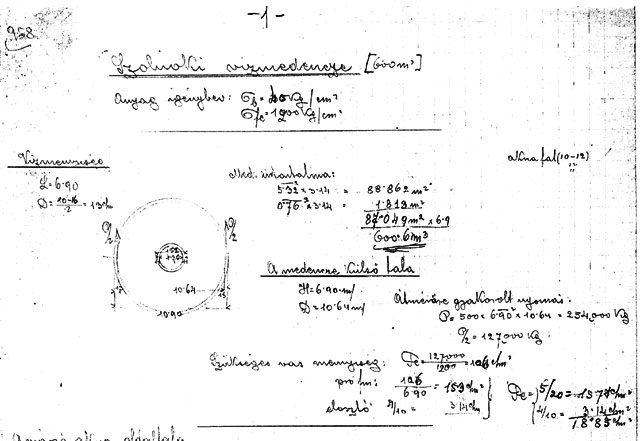 -1-
958
Szolnoki vizmedencze [600m³]
Anyag igénybev: σb = 40 kg/cm²
σe = 1200 kg/cm²
Vizmennyiség
akna fal (10-12)
Med. űrtartalma:
5.32² × 3.14 = 88.862 m²
0.76² × 3.14 = 1.813 m²
87.049 m² × 6.9
600.6 m³
P/2
P/2
152
10.64
10.90
A medencze külső fala
H = 6.90 m/
D = 10.64 m/
Átmérőre gyakorolt nyomás:
P = 500 × 6.90² × 10.64 = 254,000 Kg
P/2 = 127,000 Kg
Szükséges vas mennyiség: Fe = 127000/1200 = 106 cm²
pro/m: 106/6.90 = 15.3 cm²
elosztó 4/10 = 3.14 cm²
Fe = 5/20 = 15.71 cm²
4/10 = 3.14 cm²
18.85 cm²